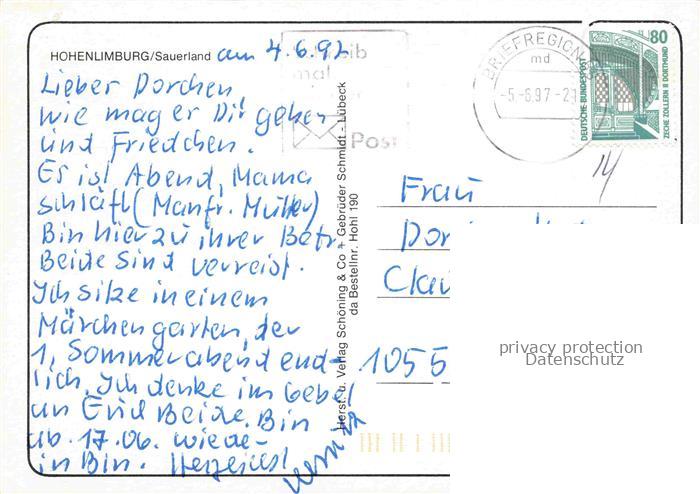 HOHENLIMBURG/Sauerland am 4.6.97
Lieber Dorchen,
wie mag er Dir gehen
und Friedchen.
Es ist Abend, Mama
schläft (Manfr. Mutter)
Bin hier zu ihrer Betr.
Beide sind verreist.
Ich sitze in einem
Märchengarten, der
1. Sommerabend end-
lich. Ich denke im Gebet
an Euch Beide. Bin
ab. 17.06. wiede-
in Bln. Herzlichst
Herst. u. Verlag Schöning & Co + Gebrüder Schmidt - Lübeck
da Bestellnr. Hohl 190
mal
Post
BRIEFREGION
md
-5.-6.97-2
80
DEUTSCHE BUNDESPOST
ZECHE ZOLLERN II DORTMUND
14
Frau
1055
privacy protection
Datenschutz